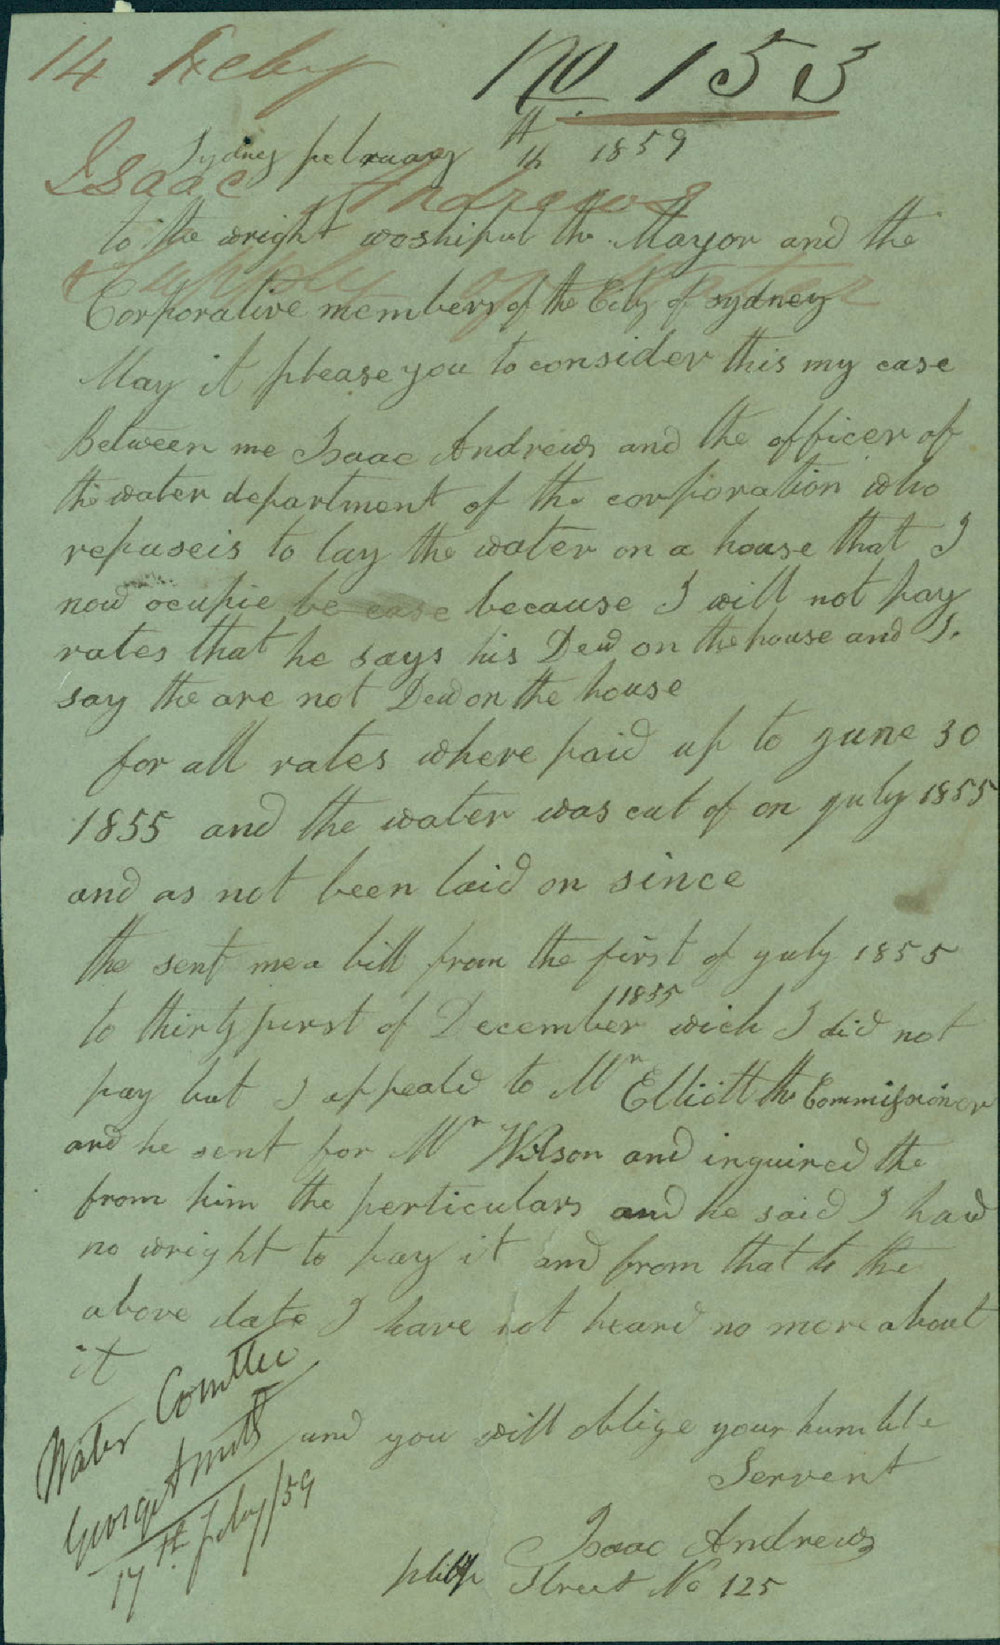 14 Feby
No 153
Sydney february 14th 1859
Isaac Andrews
to the wright woshipul the Mayor and the
Supply of Water
Corporative members of the City of sydney
May it please you to consider this my case
between me Isaac Andrews and the officer of
the water department of the corporation who
refuseis to lay the water on a house that I
now ocupie be case because I will not pay
rates that he says his Dew on the house and I
say the are not Dew on the house
for all rates where paid up to june 30
1855 and the water was cut of on july 1855
and as not been laid on since
the sent me a bill from the first of july 1855
to thirty furst of December 1855 wich I did not
pay but I appeald to Mr Elliott the Commissioner
and he sent for Mr Wilson and inquired the
from him the perticulars and he said I had
no wright to pay it and from that to the
above date I have not heard no more about
it
Water Comttee
George Smith
17th feby/59
and you will oblige your humble
Servent
Isaac Andrews
philip Street No 125